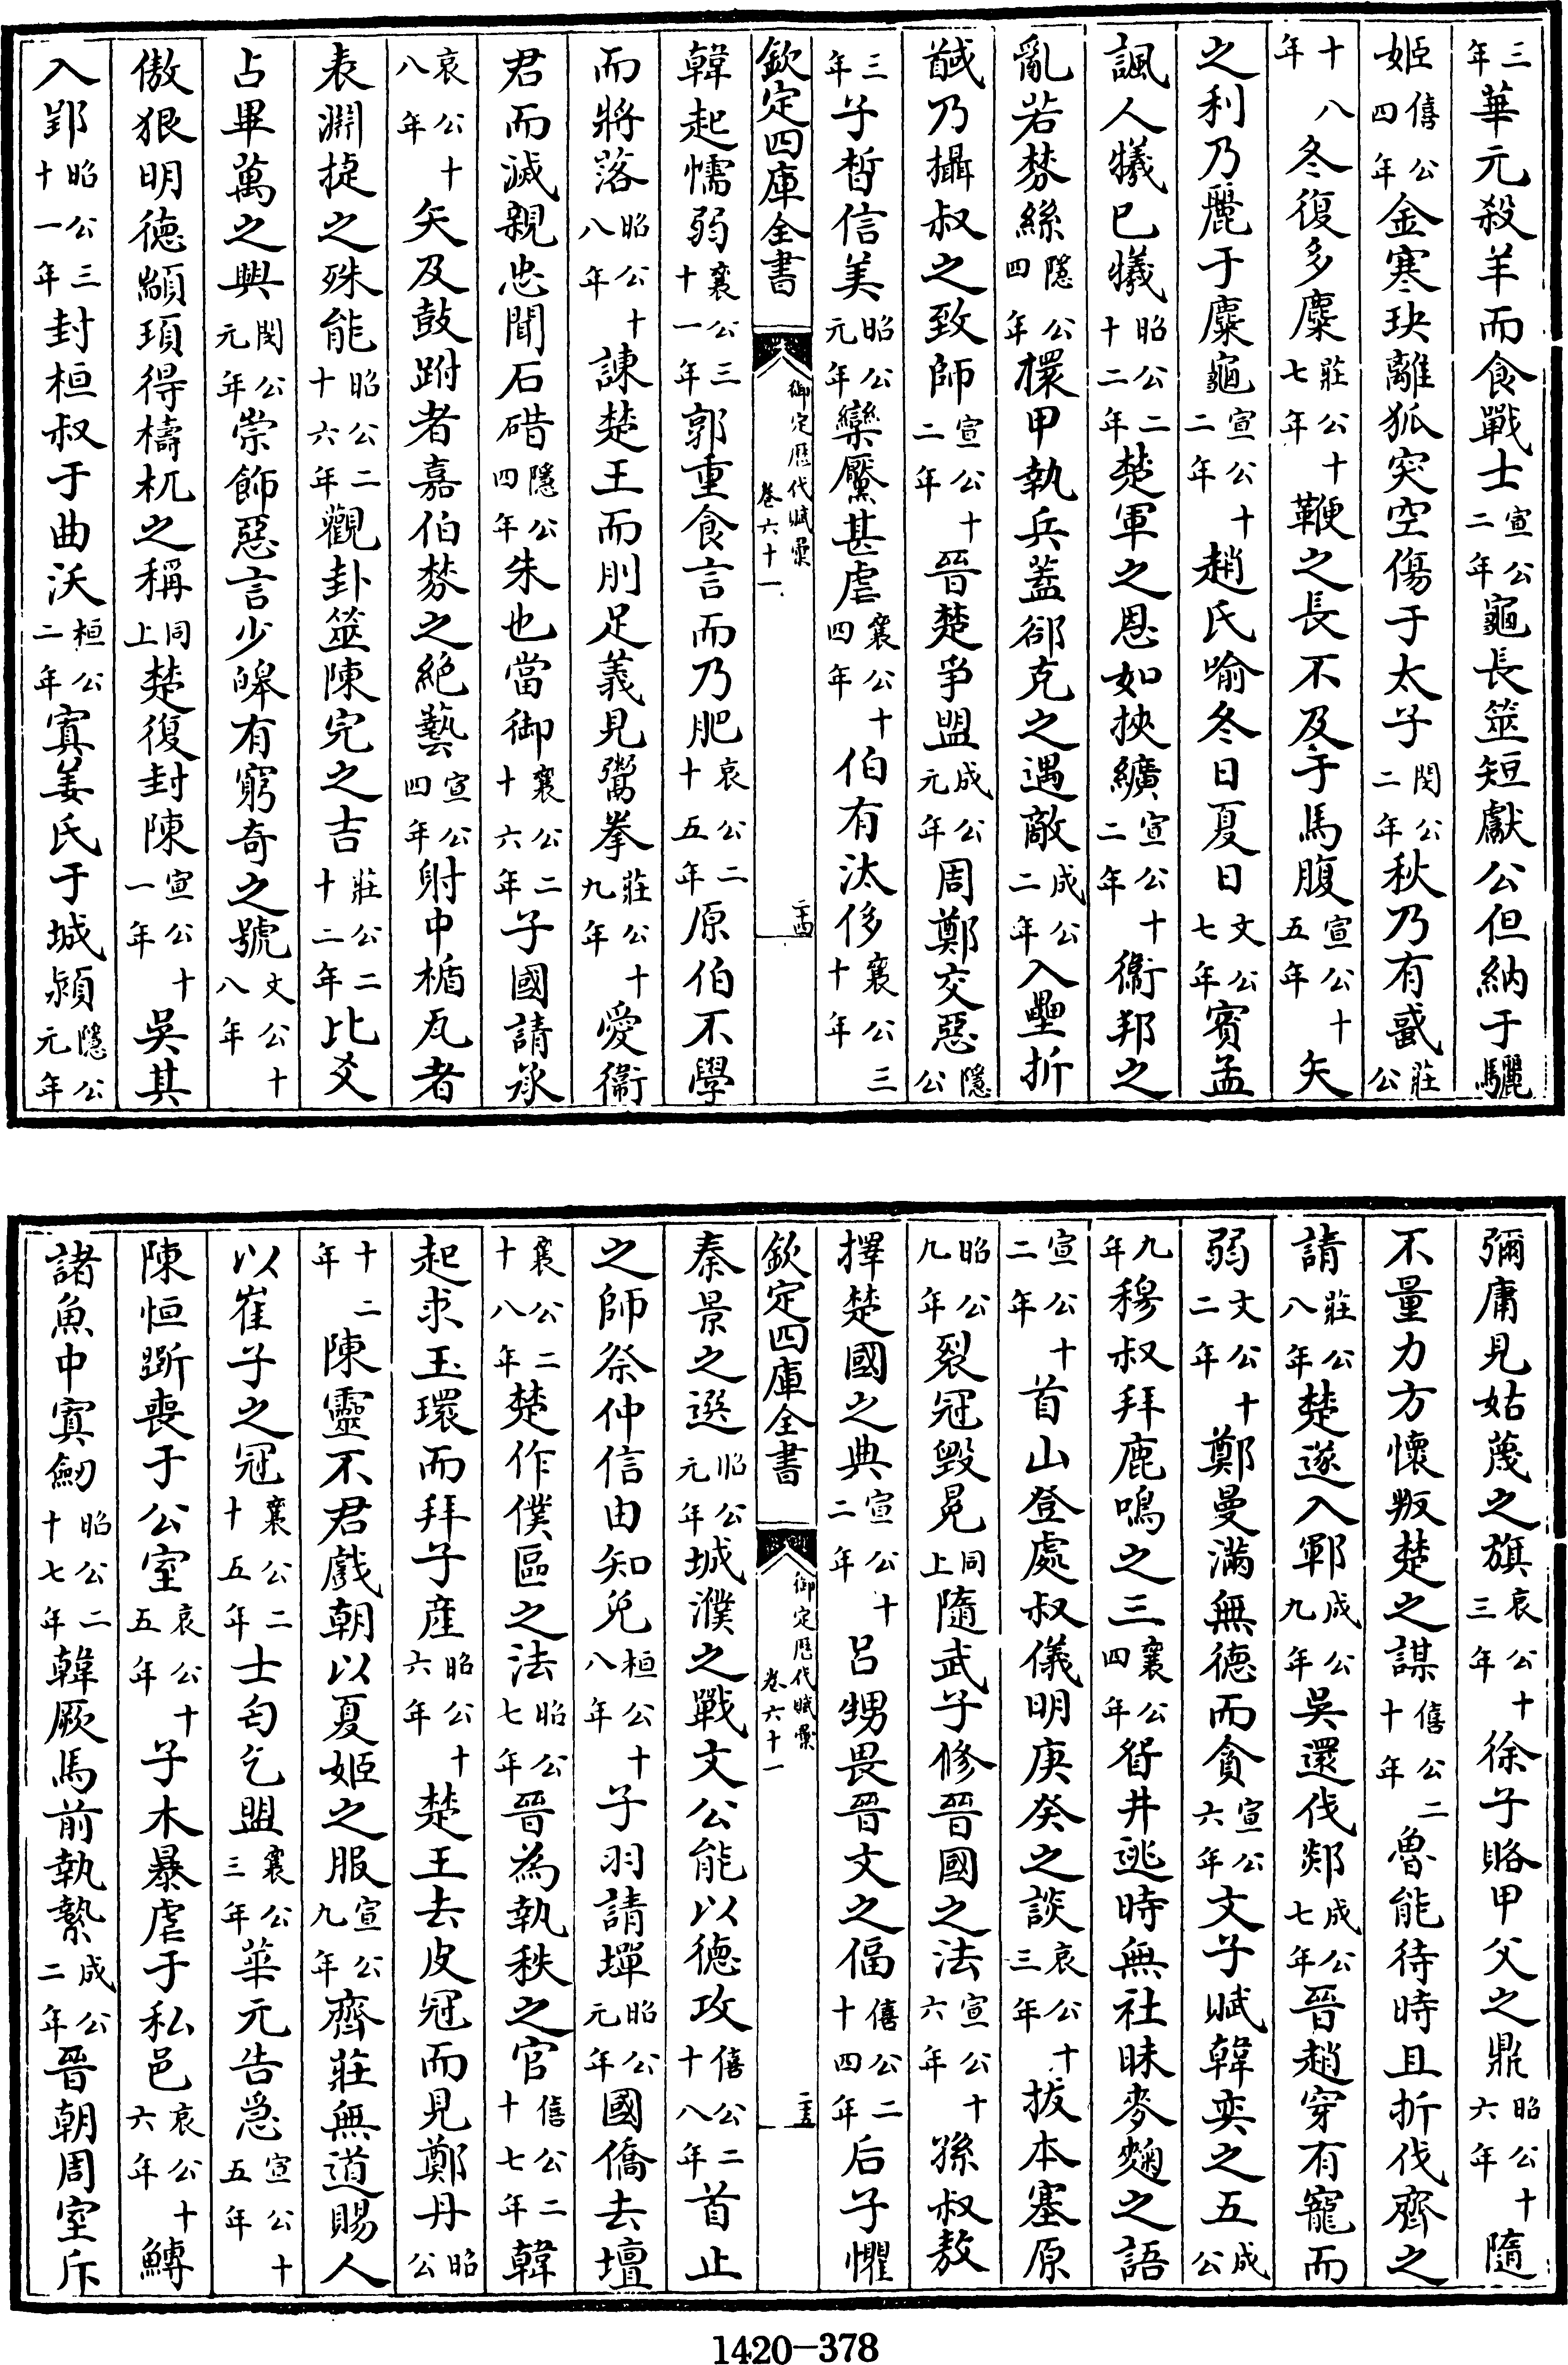 三年華元殺羊而食戰士宣公二年龜長筮短獻公但納于驪
姬僖公四年金寒玦離狐突空傷于太子閔公二年秋乃有蜮莊公
十八年冬復多麋莊公十七年鞭之長不及于馬腹宣公十五年矢
之利乃麗于麋龜宣公十二年趙氏喻冬日夏日文公七年賓孟
諷人犧已犧昭公二十二年楚軍之恩如挾纊宣公十二年衞邦之
亂若棼絲隱公四年擐甲執兵蓋郤克之遇敵成公二年入壘折
馘乃攝叔之致師宣公十二年晉楚爭盟成公元年周鄭交惡隱公
三年子晳信美昭公元年欒黶甚虐襄公十四年伯有汰侈襄公三十年
欽定四庫全書 御定歷代賦彙 卷六十一 二十四
韓起懦弱襄公三十一年郭重食言而乃肥哀公二十五年原伯不學
而將落昭公十八年諫楚王而刖足義見鬻拳莊公十九年愛衞
君而滅親忠聞石碏隱公四年朱也當御襄公二十六年子國請承
哀公十八年矢及鼓跗者嘉伯棼之絶藝宣公四年射中楯瓦者
表淵捷之殊能昭公二十六年觀卦筮陳完之吉莊公二十二年比爻
占畢萬之興閔公元年崇飾惡言少皞有窮奇之號文公十八年
傲狠明德顓頊得檮杌之稱同上楚復封陳宣公十一年吳其
入郢昭公三十一年封桓叔于曲沃桓公二年寘姜氏于城潁隱公元年
彌庸見姑蔑之旗哀公十三年徐子賂甲父之鼎昭公十六年隨
不量力方懷叛楚之謀僖公二十年魯能待時且折伐齊之
請莊公八年楚遂入鄆成公九年吳還伐郯成公七年晉趙穿有寵而
弱文公十二年鄭曼滿無德而貪宣公六年文子賦韓奕之五成公
九年穆叔拜鹿鳴之三襄公四年眢井逃時無社昧麥麴之語
宣公十二年首山登處叔儀明庚癸之談哀公十三年拔本塞原
昭公九年裂冠毀冕同上隨武子修晉國之法宣公十六年孫叔敖
擇楚國之典宣公十二年呂甥畏晉文之偪僖公二十四年后子懼
欽定四庫全書 御定歷代賦彙 卷六十一 二十五
秦景之選昭公元年城濮之戰文公能以德攻僖公二十八年首止
之師祭仲信由知免桓公十八年子羽請墠昭公元年國僑去壇
襄公二十八年楚作僕區之法昭公七年晉為執秩之官僖公二十七年韓
起求玉環而拜子産昭公十六年楚王去皮冠而見鄭丹昭公
十二年陳靈不君戲朝以夏姬之服宣公九年齊莊無道賜人
以崔子之冠襄公二十五年士匄乞盟襄公三年華元告急宣公十五年
陳恒斲喪于公室哀公十五年子木暴虐于私邑哀公十六年鱄
諸魚中寘劒昭公二十七年韓厥馬前執縶成公二年晉朝周室斥
1420－378